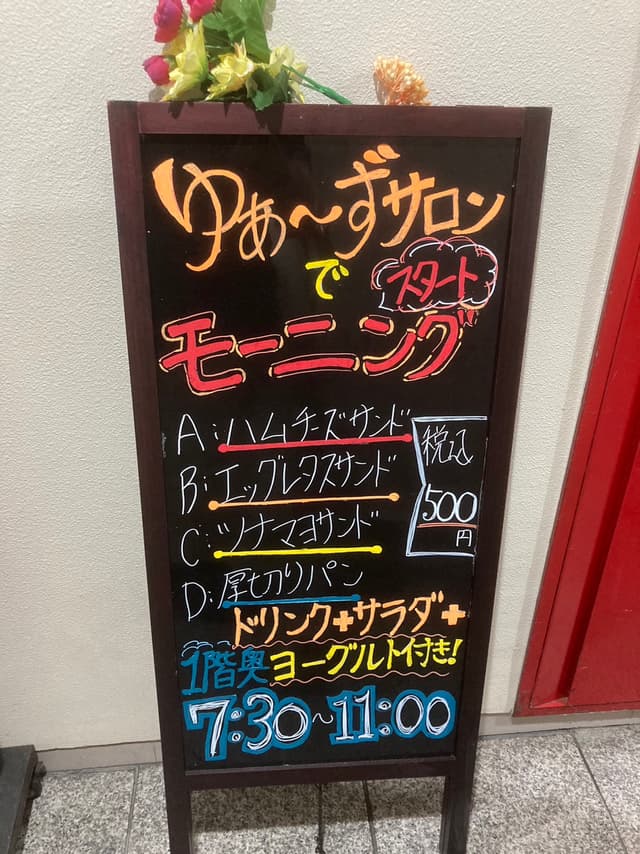 ゆあ〜ずサロン
で
スタート
モーニング
A:ハムチーズサンド
B:エッグレタスサンド
C:ツナマヨサンド
D:厚切りパン
税込
500
円
ドリンク+サラダ+
1階奥 ヨーグルト付き!
7:30~11:00